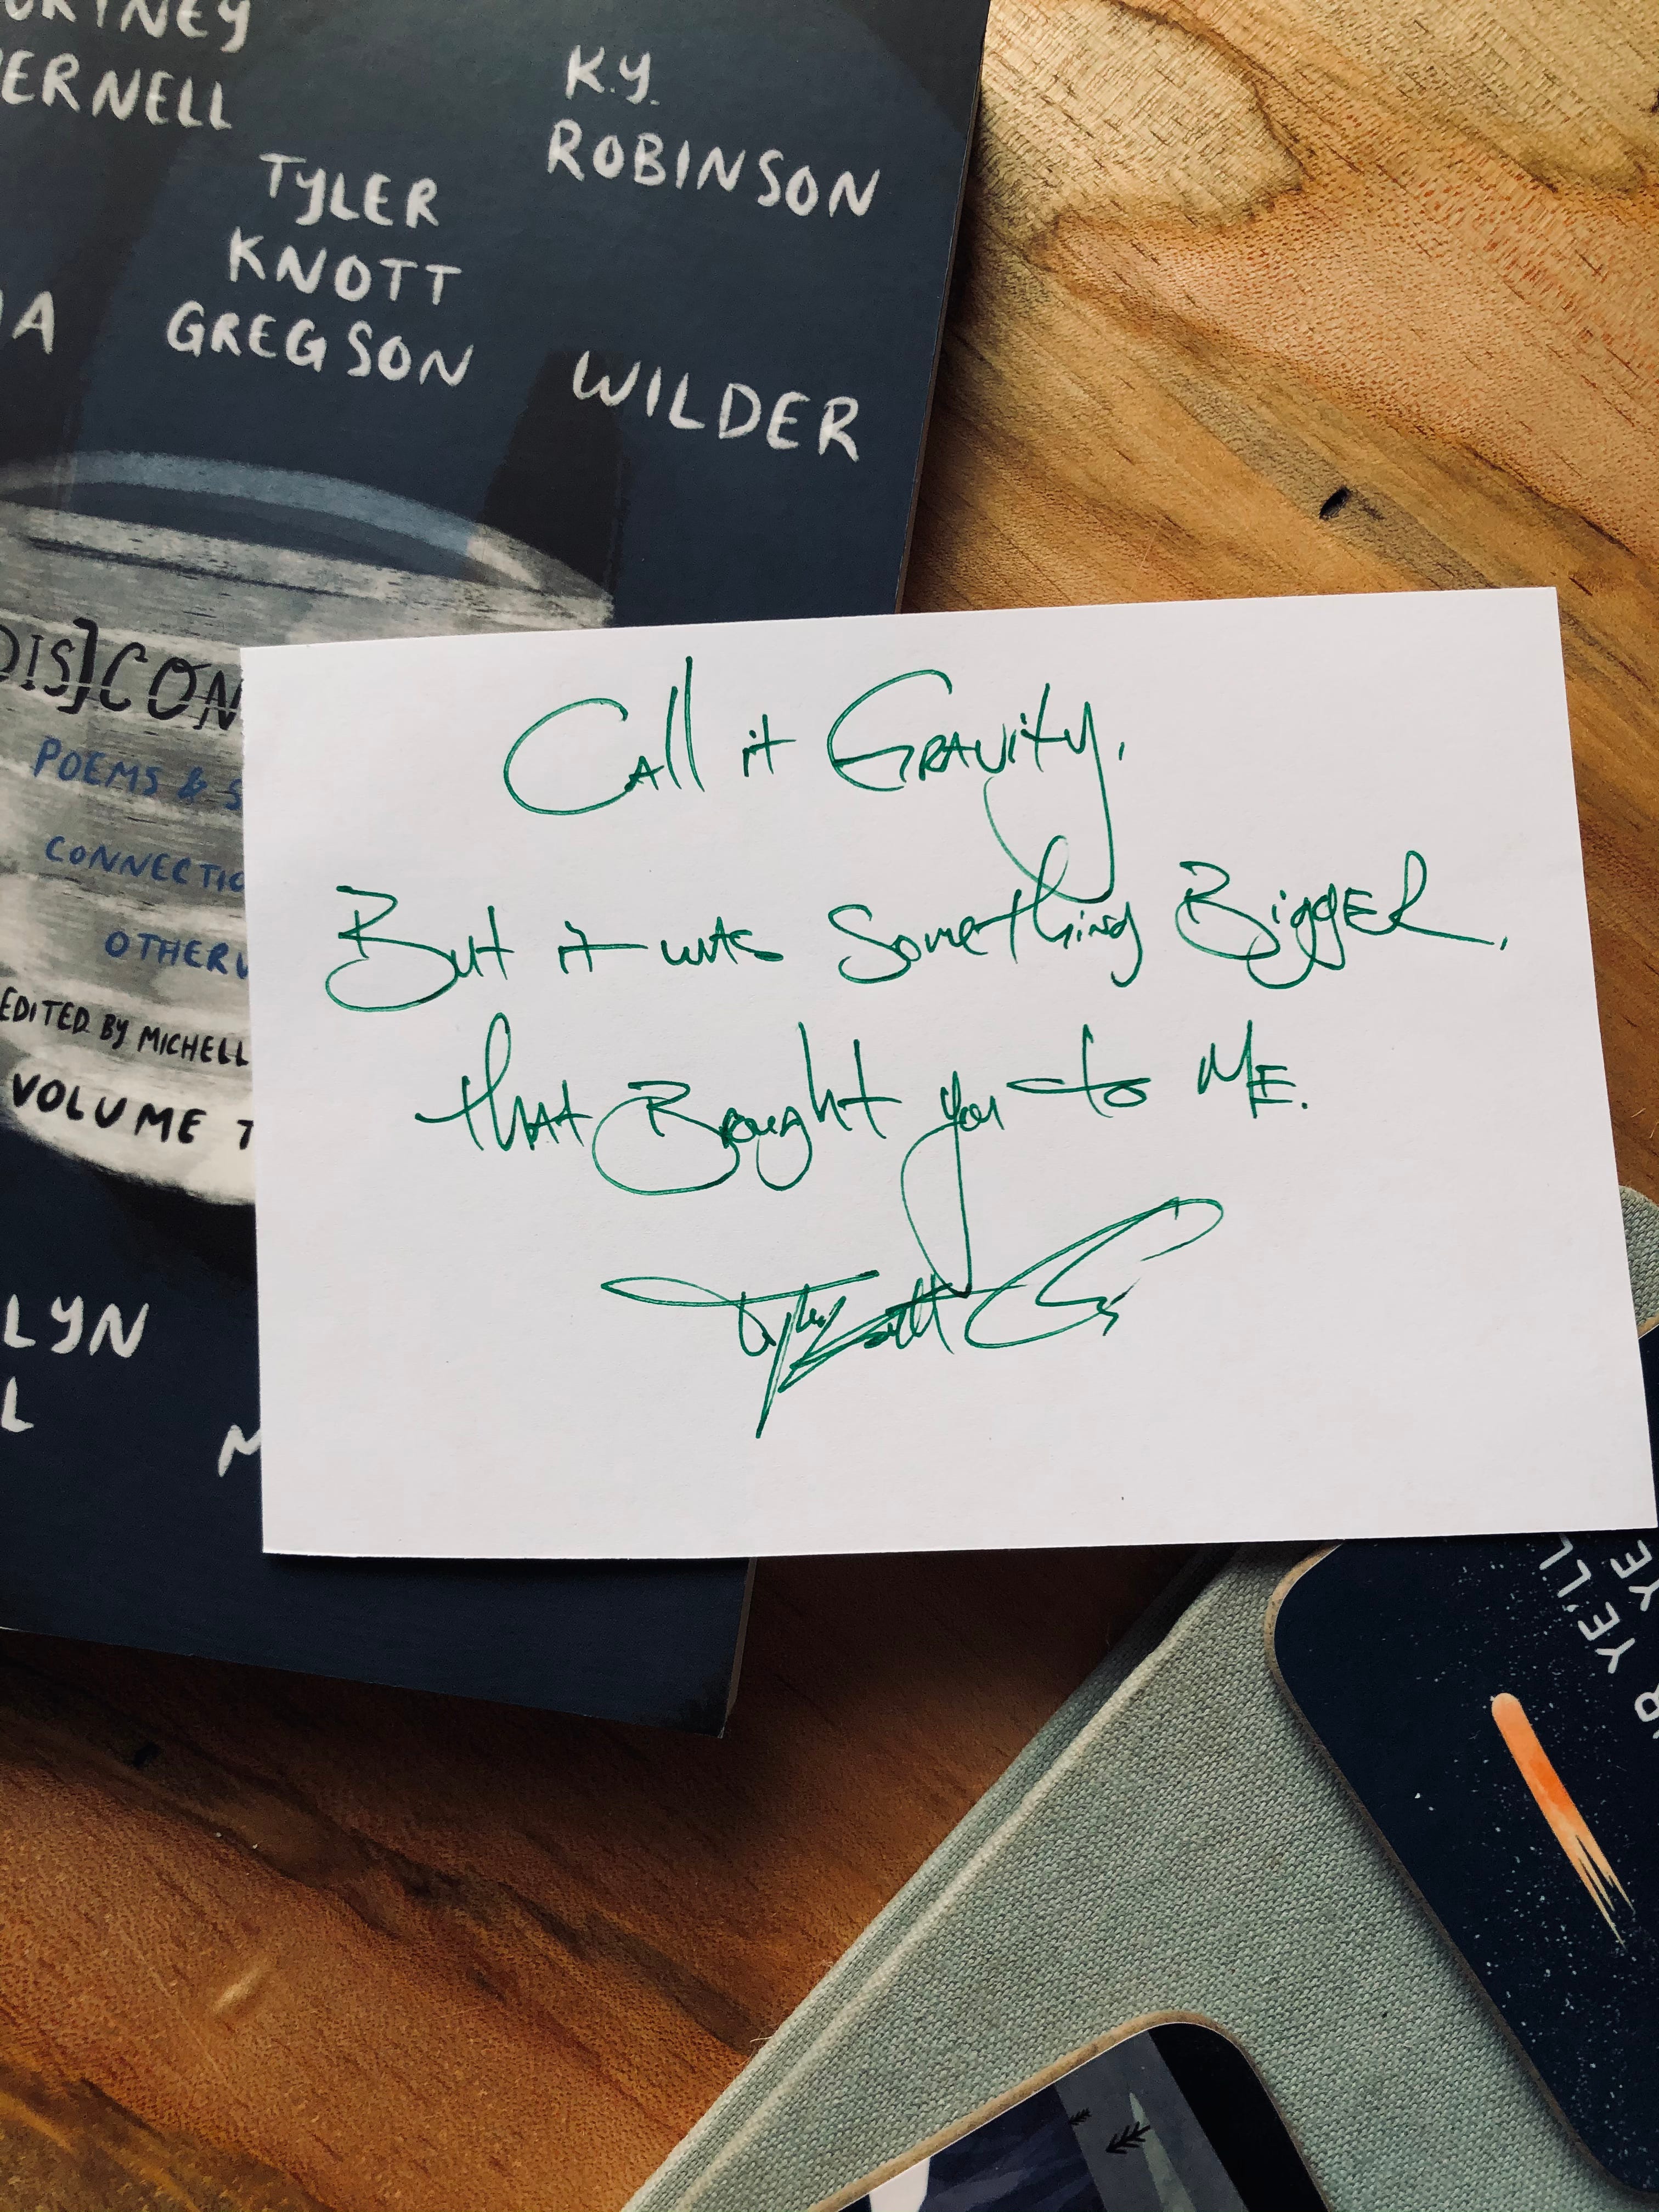 URTNEY
PERNELL
K.Y.
ROBINSON
TYLER
KNOTT
GREGSON
IA
WILDER
DIS]CON
POEMS & S
CONNECTIO
OTHERW
EDITED BY MICHELL
VOLUME T
LYN
L
M
Call it Gravity,
But it was Something Bigger,
that Brought you to Me.
Tyler Knott G
YE'LL
YE
R